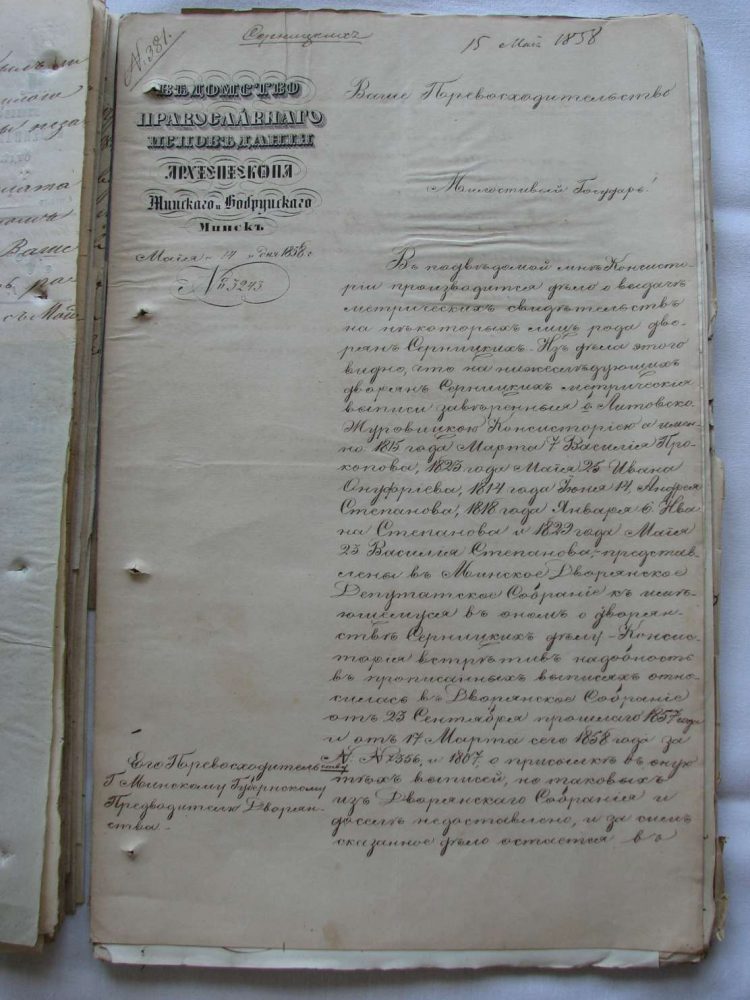 N. 381.
Серницкихъ
15 Май 1858
ВѢДОМСТВО
ПРАВОСЛАВНАГО
ИСПОВѢДАНІЯ
АРХІЕПИСКОПА
Минскаго и Бобруйскаго
Минскъ
Майя 14 дня 1858 г
№ 3243
Ваше Превосходительство
Милостивый Государь!
Въ подвѣдомой мнѣ Консисто-
ріи производится дѣло о выдачѣ
метрическихъ свидѣтельствъ
на нѣкоторыхъ лицъ рода дво-
рянъ Серницкихъ. Изъ дѣла этого
видно, что на нижеслѣдующихъ
дворянъ Серницкихъ метрическія
выписи завѣренныя б. Литовско
Журовицкою Консисторіею а имен-
но: 1815 года Марта 7 Василія Про-
копова, 1823 года Майя 25 Ивана
Онуфріева, 1814 года Іюня 14, Андрея
Степанова, 1818 года Января 6 Ива
на Степанова и 1829 года Майя
23 Василія Степанова, представ-
лены въ Минское Дворянское
Депутатское Собраніе къ имѣ-
ющемуся въ ономъ о дворян-
ствѣ Серницкихъ дѣлу - Консис-
торія встрѣтивъ надобность
въ прописанныхъ выписяхъ отно-
силась въ Дворянское Собраніе
отъ 23 Сентября прошлаго 1857 года
и отъ 17 Марта сего 1858 года за
N. N 7356, и 1807, о присылкѣ въ оную
тѣхъ выписей, но таковыхъ
изъ Дворянскаго Собранія и
доселѣ недоставлено, и за симъ
сказанное дѣло остается въ
Его Превосходительству
Г Минскому Губернскому
Предводителю Дворян-
ства.